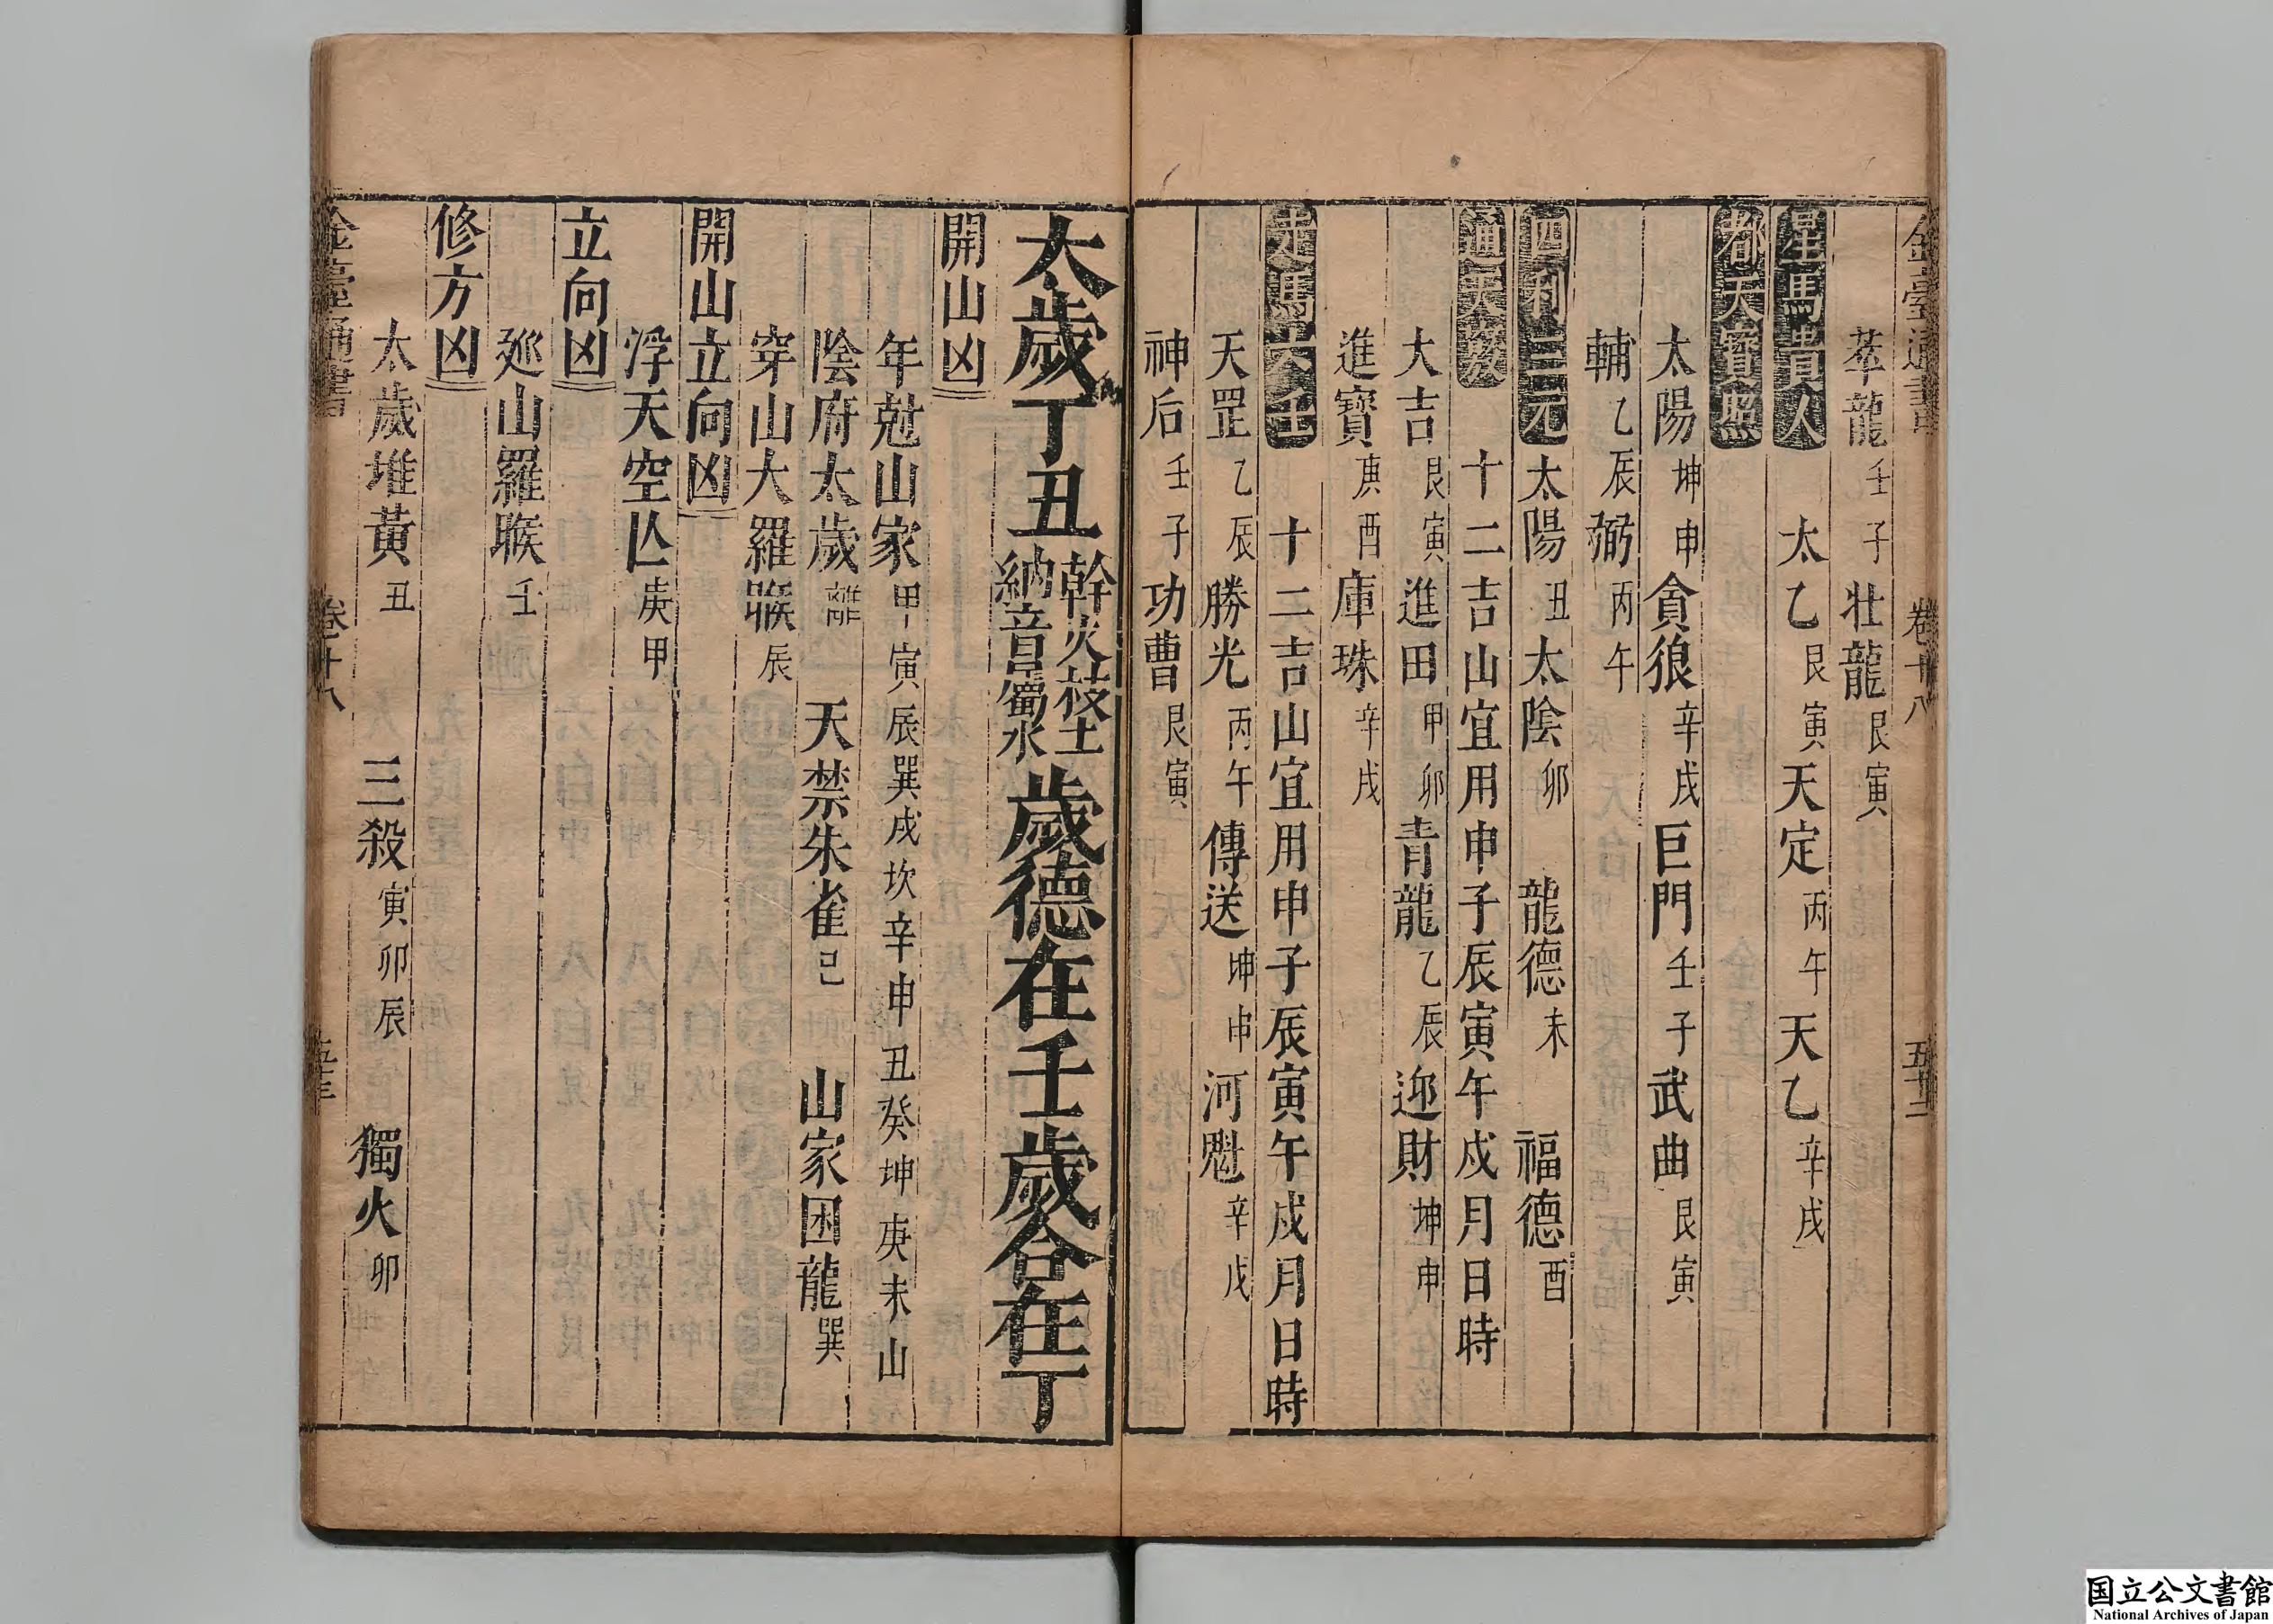 金臺通書 卷十八 五十二
萃龍壬子壯龍艮寅
星馬貴人 太乙艮寅天定丙午天乙辛戌
都天寶照
太陽坤申貪狼辛戌巨門壬子武曲艮寅
輔乙辰弼丙午
四利三元 太陽丑太陰卯 龍德未 福德酉
通天竅 十二吉山宜用申子辰寅午戌月日時
大吉艮寅進田甲卯青龍乙辰迎財坤申
進寶庚酉庫珠辛戌
走馬六壬 十二吉山宜用申子辰寅午戌月日時
天罡乙辰勝光丙午傳送坤申河魁辛戌
神后壬子功曹艮寅
太歲丁丑 幹火枝土 納音㵎水 歲德在壬歲合在丁
開山凶
年尅山家甲寅辰巽戌坎辛申丑癸坤庚未山
陰府太歲離 天禁朱雀巳 山家困龍巽
穿山大羅睺辰
開山立向凶
浮天空亾庚甲
立向凶
廵山羅睺壬
修方凶
太歲堆黃丑 三殺寅卯辰 獨火卯
金臺通書 卷十八
国立公文書館
National Archives of Japan